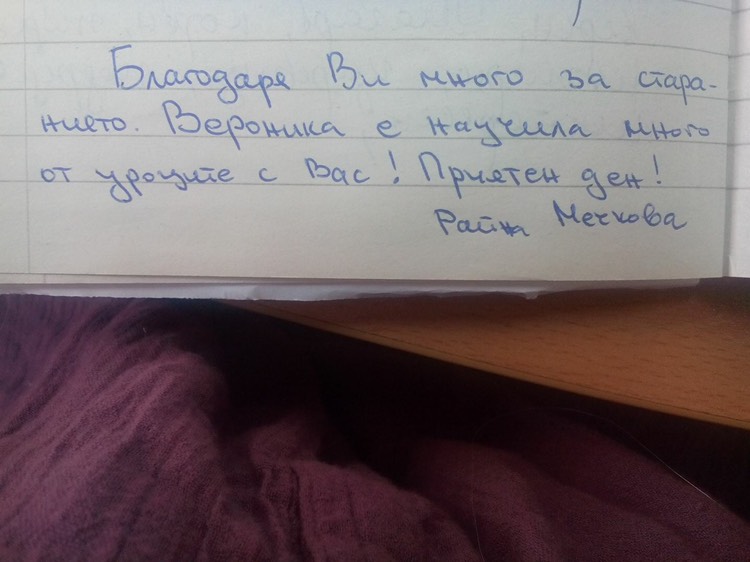 Благодаря Ви много за стара-
нието. Вероника е научила много
от уроците с Вас! Приятен ден!
Райна Мечкова